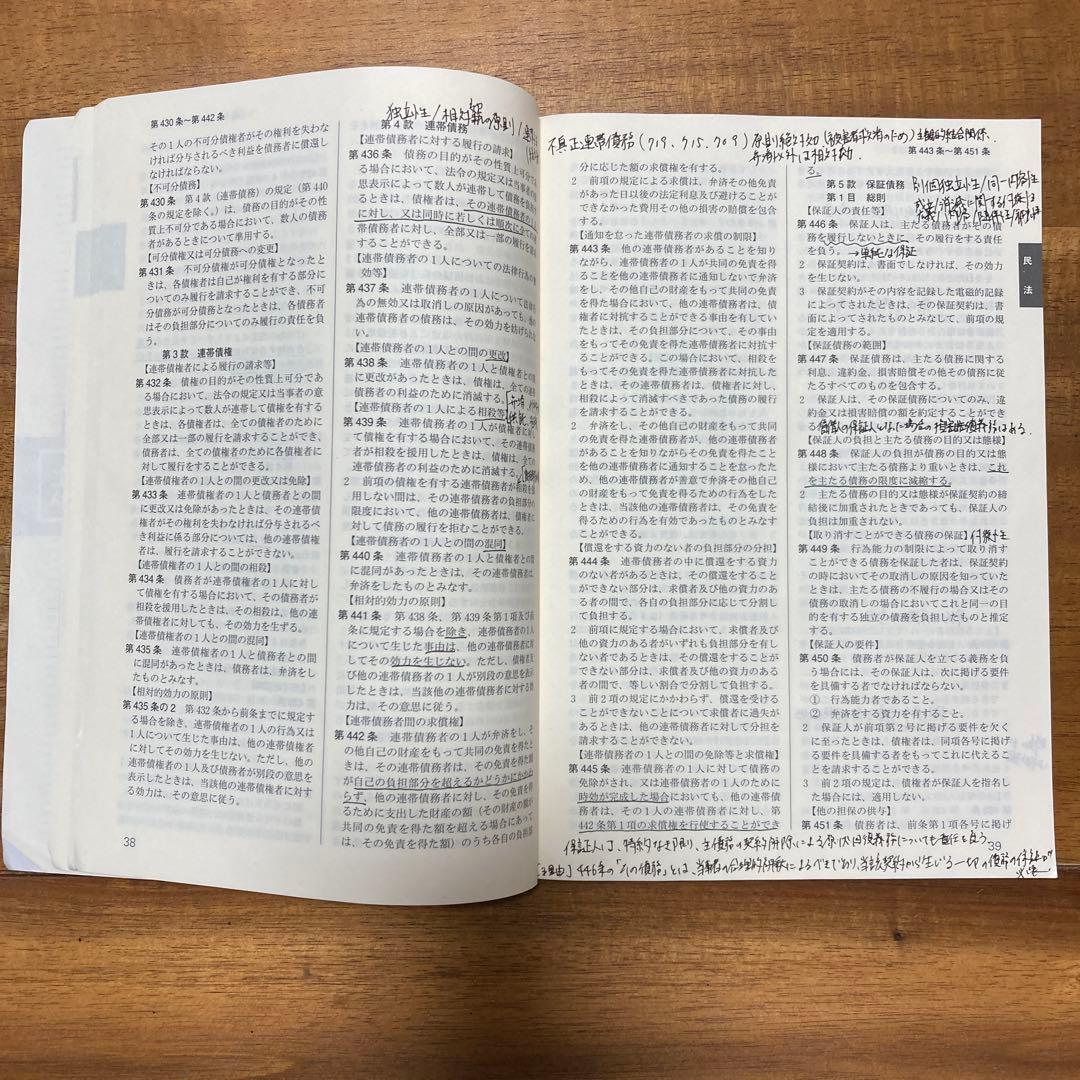 第430条～第442条
その1人の不可分債権者がその権利を失わな
ければ分与されるべき利益を債務者に償還し
なければならない。
【不可分債務】
第430条 第4款（連帯債務）の規定（第440
条の規定を除く。）は、債務の目的がその性
質上不可分である場合において、数人の債務
者があるときについて準用する。
【可分債権又は可分債務への変更】
第431条 不可分債権が可分債権となったと
きは、各債権者は自己が権利を有する部分に
ついてのみ履行を請求することができ、不可
分債務が可分債務となったときは、各債務者
はその負担部分についてのみ履行の責任を負
う。
第3款 連帯債権
【連帯債権者による履行の請求等】
第432条 債権の目的がその性質上可分であ
る場合において、法令の規定又は当事者の意
思表示によって数人が連帯して債権を有する
ときは、各債権者は、全ての債権者のために
全部又は一部の履行を請求することができ、
債務者は、全ての債権者のために各債権者に
対して履行をすることができる。
【連帯債権者の1人との間の更改又は免除】
第433条 連帯債権者の1人と債務者との間
に更改又は免除があったときは、その連帯債
権者がその権利を失わなければ分与されるべ
き利益に係る部分については、他の連帯債権
者は、履行を請求することができない。
【連帯債権者の1人との間の相殺】
第434条 債務者が連帯債権者の1人に対し
て債権を有する場合において、その債務者が
相殺を援用したときは、その相殺は、他の連
帯債権者に対しても、その効力を生ずる。
【連帯債権者の1人との間の混同】
第435条 連帯債権者の1人と債務者との間
に混同があったときは、債務者は、弁済をし
たものとみなす。
【相対的効力の原則】
第435条の2 第432条から前条までに規定す
る場合を除き、連帯債権者の1人の行為又は
1人について生じた事由は、他の連帯債権者
に対してその効力を生じない。ただし、他の
連帯債権者の1人及び債務者が別段の意思を
表示したときは、当該他の連帯債権者に対す
る効力は、その意思に従う。
38
独立性/相対効の原則/
第4款 連帯債務
【連帯債務者に対する履行の請求】
第436条 債務の目的がその性質上可分で
る場合において、法令の規定又は当事者の
思表示によって数人が連帯して債務を負担
るときは、債権者は、その連帯債務者の1人
に対し、又は同時に若しくは順次に全ての連
帯債務者に対し、全部又は一部の履行を請
することができる。
【連帯債務者の1人についての法律行為の無
効等】
第437条 連帯債務者の1人について法律行
為の無効又は取消しの原因があっても、他の
連帯債務者の債務は、その効力を妨げられな
い。
【連帯債務者の1人との間の更改】
第438条 連帯債務者の1人と債権者との間
に更改があったときは、債権は、全ての連帯
債務者の利益のために消滅する。
【連帯債務者の1人による相殺等】
第439条 連帯債務者の1人が債権者に対し
て債権を有する場合において、その連帯債務
者が相殺を援用したときは、債権は、全ての
連帯債務者の利益のために消滅する。
2 前項の債権を有する連帯債務者が相殺を援
用しない間は、その連帯債務者の負担部分の
限度において、他の連帯債務者は、債権者に
対して債務の履行を拒むことができる。
【連帯債務者の1人との間の混同】
第440条 連帯債務者の1人と債権者との間
に混同があったときは、その連帯債務者は、
弁済をしたものとみなす。
【相対的効力の原則】
第441条 第438条、第439条第1項及び前
条に規定する場合を除き、連帯債務者の1人
について生じた事由は、他の連帯債務者に対
してその効力を生じない。ただし、債権者及
び他の連帯債務者の1人が別段の意思を表示
したときは、当該他の連帯債務者に対する効
力は、その意思に従う。
【連帯債務者間の求償権】
第442条 連帯債務者の1人が弁済をし、そ
の他自己の財産をもって共同の免責を得たと
きは、その連帯債務者は、その免責を得た額
が自己の負担部分を超えるかどうかにかかわ
らず、他の連帯債務者に対し、その免責を得
るために支出した財産の額（その財産の額が
共同の免責を得た額を超える場合にあって
は、その免責を得た額）のうち各自の負担部
不真正連帯債務(719、715、709) 原則絶対効(被害者救済のため)主観的結合関係
弁済以外は相対効
第443条～第451条
分に応じた額の求償権を有する。
2 前項の規定による求償は、弁済その他免責
があった日以後の法定利息及び避けることが
できなかった費用その他の損害の賠償を包含
する。
【通知を怠った連帯債務者の求償の制限】
第443条 他の連帯債務者があることを知り
ながら、連帯債務者の1人が共同の免責を得
ることを他の連帯債務者に通知しないで弁済
をし、その他自己の財産をもって共同の免責
を得た場合において、他の連帯債務者は、債
権者に対抗することができる事由を有してい
たときは、その負担部分について、その事由
をもってその免責を得た連帯債務者に対抗す
ることができる。この場合において、相殺を
もってその免責を得た連帯債務者に対抗した
ときは、その連帯債務者は、債権者に対し、
相殺によって消滅すべきであった債務の履行
を請求することができる。
2 弁済をし、その他自己の財産をもって共同
の免責を得た連帯債務者が、他の連帯債務者
があることを知りながらその免責を得たこと
を他の連帯債務者に通知することを怠ったた
め、他の連帯債務者が善意で弁済その他自己
の財産をもって免責を得るための行為をした
ときは、当該他の連帯債務者は、その免責を
得るための行為を有効であったものとみなす
ことができる。
【償還をする資力のない者の負担部分の分担】
第444条 連帯債務者の中に償還をする資力
のない者があるときは、その償還をすること
ができない部分は、求償者及び他の資力のあ
る者の間で、各自の負担部分に応じて分割し
て負担する。
2 前項に規定する場合において、求償者及び
他の資力のある者がいずれも負担部分を有し
ない者であるときは、その償還をすることが
できない部分は、求償者及び他の資力のある
者の間で、等しい割合で分割して負担する。
3 前2項の規定にかかわらず、償還を受ける
ことができないことについて求償者に過失が
あるときは、他の連帯債務者に対して分担を
請求することができない。
【連帯債務者の1人との間の免除等と求償権】
第445条 連帯債務者の1人に対して債務の
免除がされ、又は連帯債務者の1人のために
時効が完成した場合においても、他の連帯債
務者は、その1人の連帯債務者に対し、第
442条第1項の求償権を行使することができ
る。
第5款 保証債務
別個独立性/同一内容性
第1目 総則
【保証人の責任等】
第446条 保証人は、主たる債務者がその債
務を履行しないときに、その履行をする責任
を負う。
2 保証契約は、書面でしなければ、その効力
を生じない。
3 保証契約がその内容を記録した電磁的記録
によってされたときは、その保証契約は、書
面によってされたものとみなして、前項の規
定を適用する。
【保証債務の範囲】
第447条 保証債務は、主たる債務に関する
利息、違約金、損害賠償その他その債務に従
たるすべてのものを包含する。
2 保証人は、その保証債務についてのみ、違
約金又は損害賠償の額を約定することができ
る。
【保証人の負担と主たる債務の目的又は態様】
第448条 保証人の負担が債務の目的又は態
様において主たる債務より重いときは、これ
を主たる債務の限度に減縮する。
2 主たる債務の目的又は態様が保証契約の締
結後に加重されたときであっても、保証人の
負担は加重されない。
【取り消すことができる債務の保証】付従性
第449条 行為能力の制限によって取り消す
ことができる債務を保証した者は、保証契約
の時においてその取消しの原因を知っていた
ときは、主たる債務の不履行の場合又はその
債務の取消しの場合においてこれと同一の目
的を有する独立の債務を負担したものと推定
する。
【保証人の要件】
第450条 債務者が保証人を立てる義務を負
う場合には、その保証人は、次に掲げる要件
を具備する者でなければならない。
① 行為能力者であること。
② 弁済をする資力を有すること。
2 保証人が前項第2号に掲げる要件を欠く
に至ったときは、債権者は、同項各号に掲げ
る要件を具備する者をもってこれに代えるこ
とを請求することができる。
3 前2項の規定は、債権者が保証人を指名し
た場合には、適用しない。
【他の担保の供与】
第451条 債務者は、前条第1項各号に掲げ
39
民法
保証人は、特約なき限り、主債務の契約解除による原状回復義務についても責任を負う
[理由]446条の「その債務」とは、当事者の合理的解釈によるべきであり、当該契約から生じる一切の債務の保証が